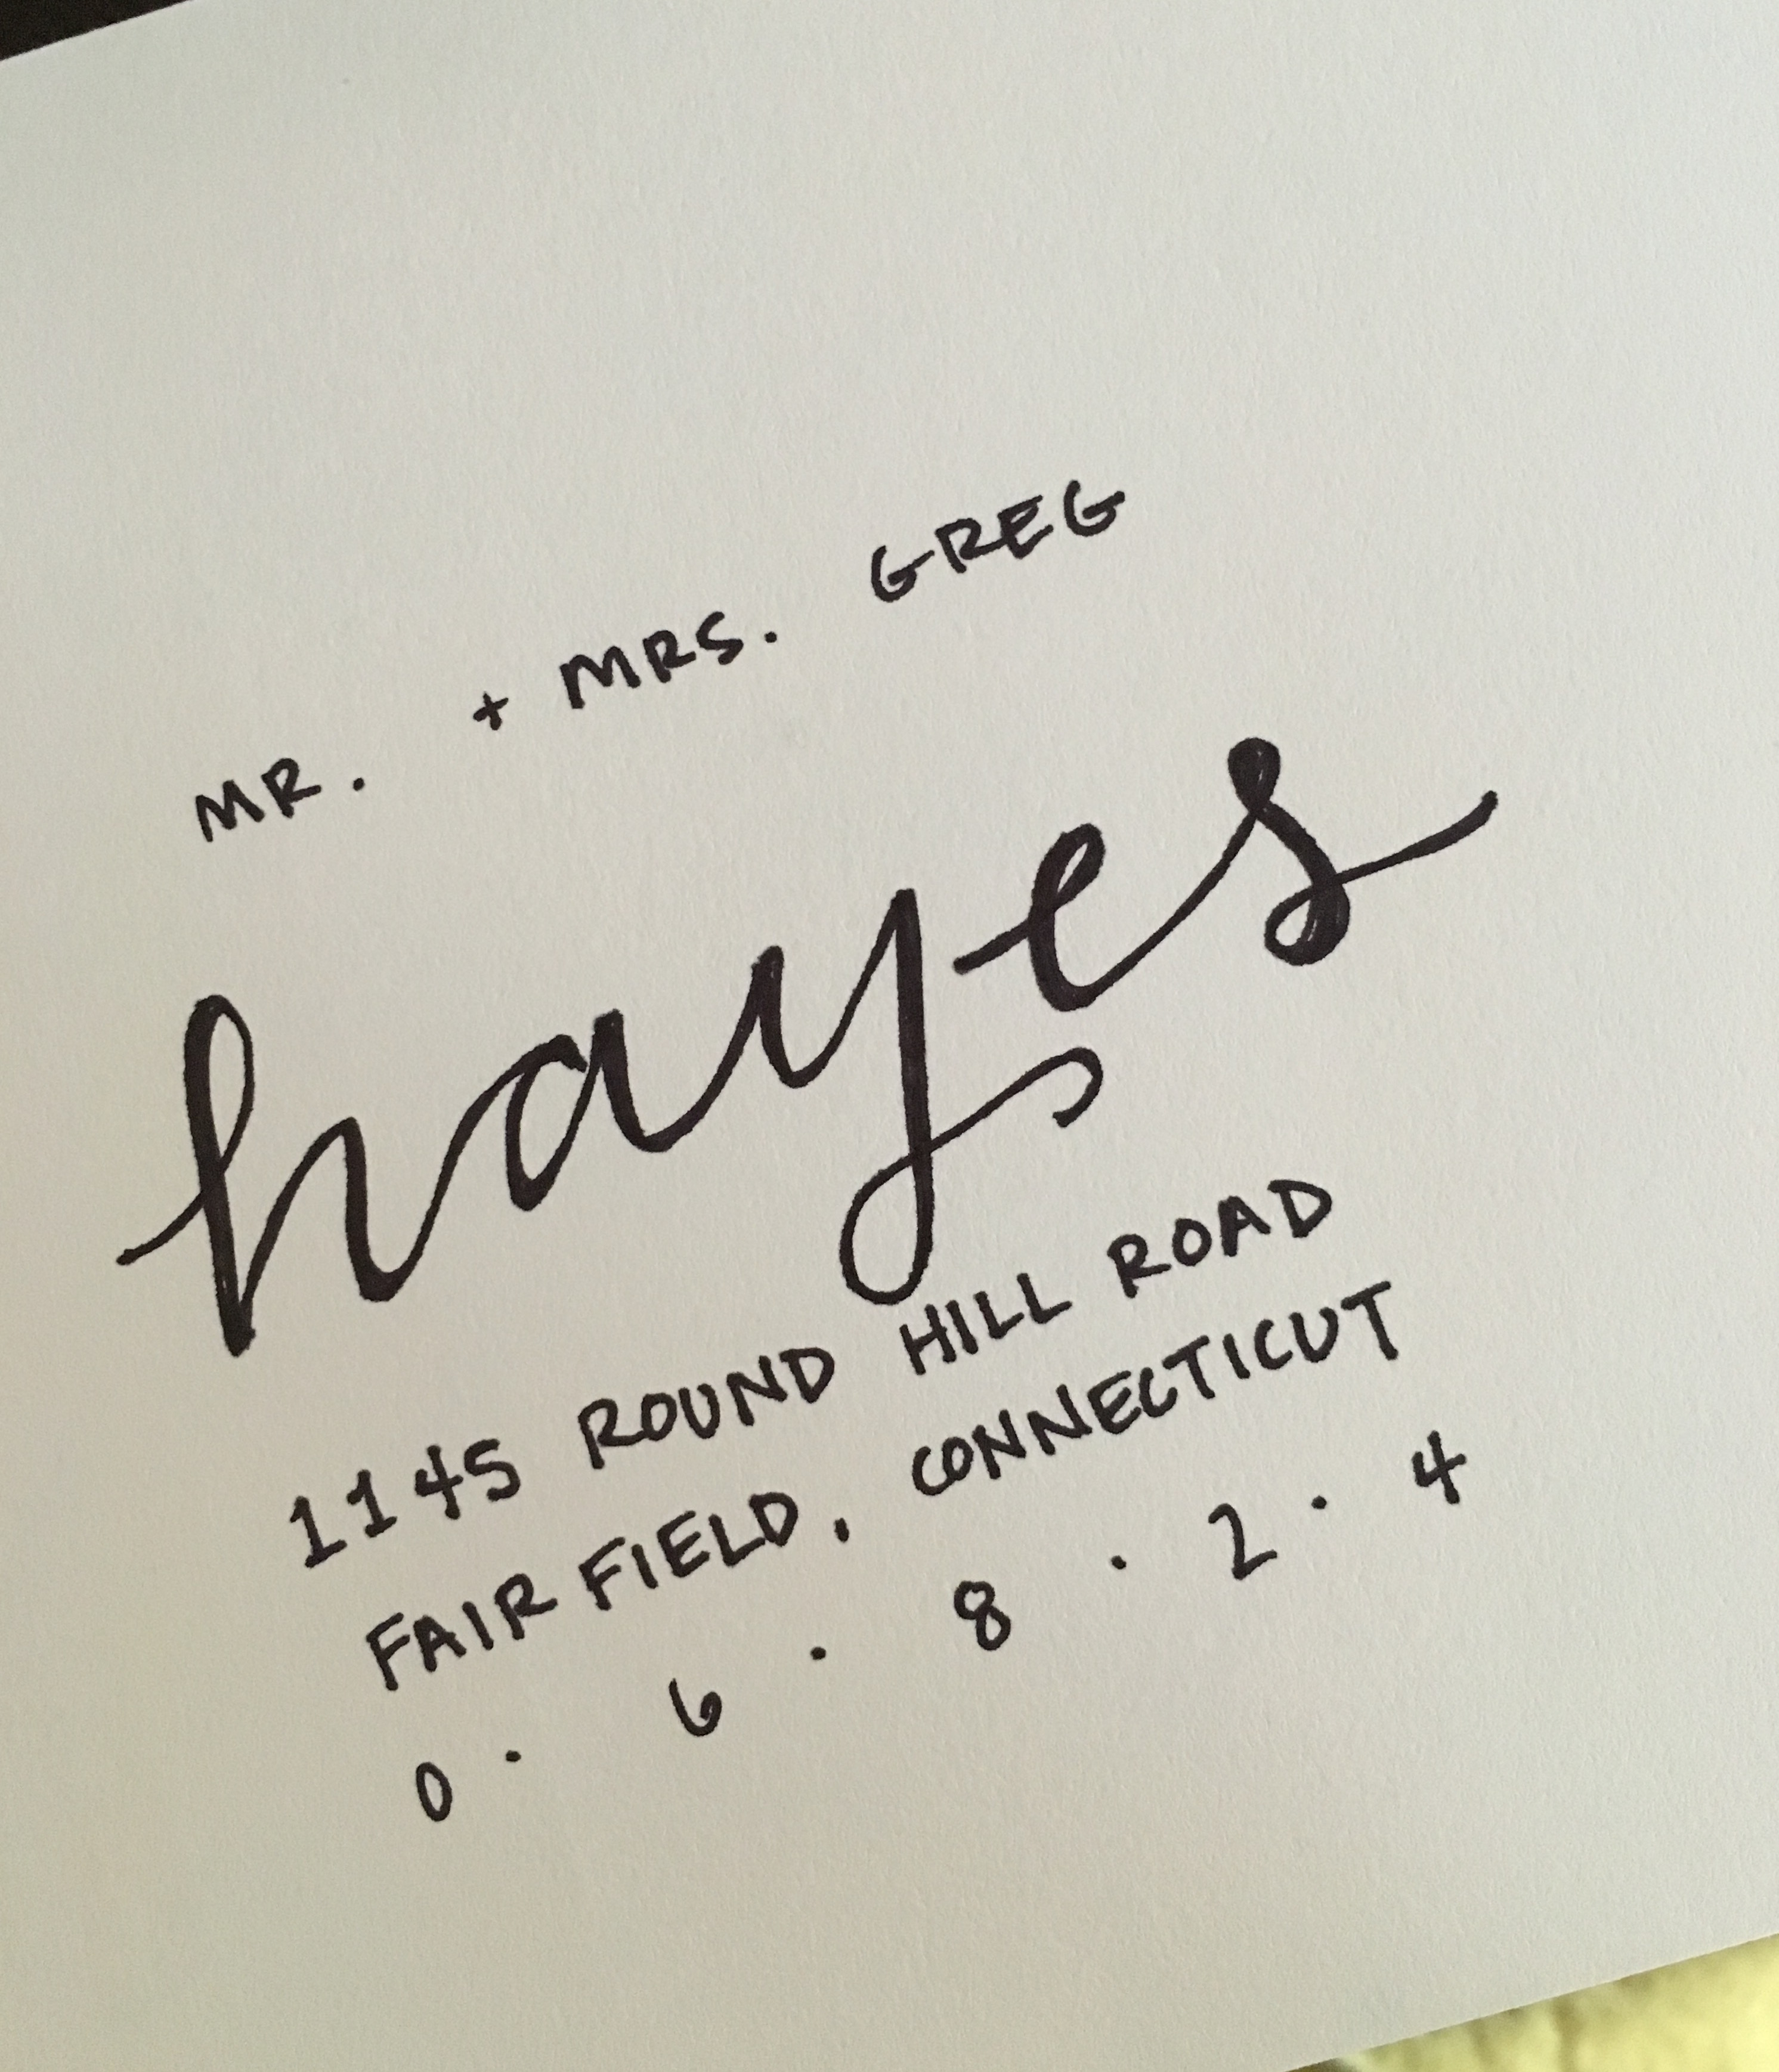 MR. + MRS. GREG
hayes
1145 ROUND HILL ROAD
FAIRFIELD, CONNECTICUT
0 · 6 · 8 · 2 · 4